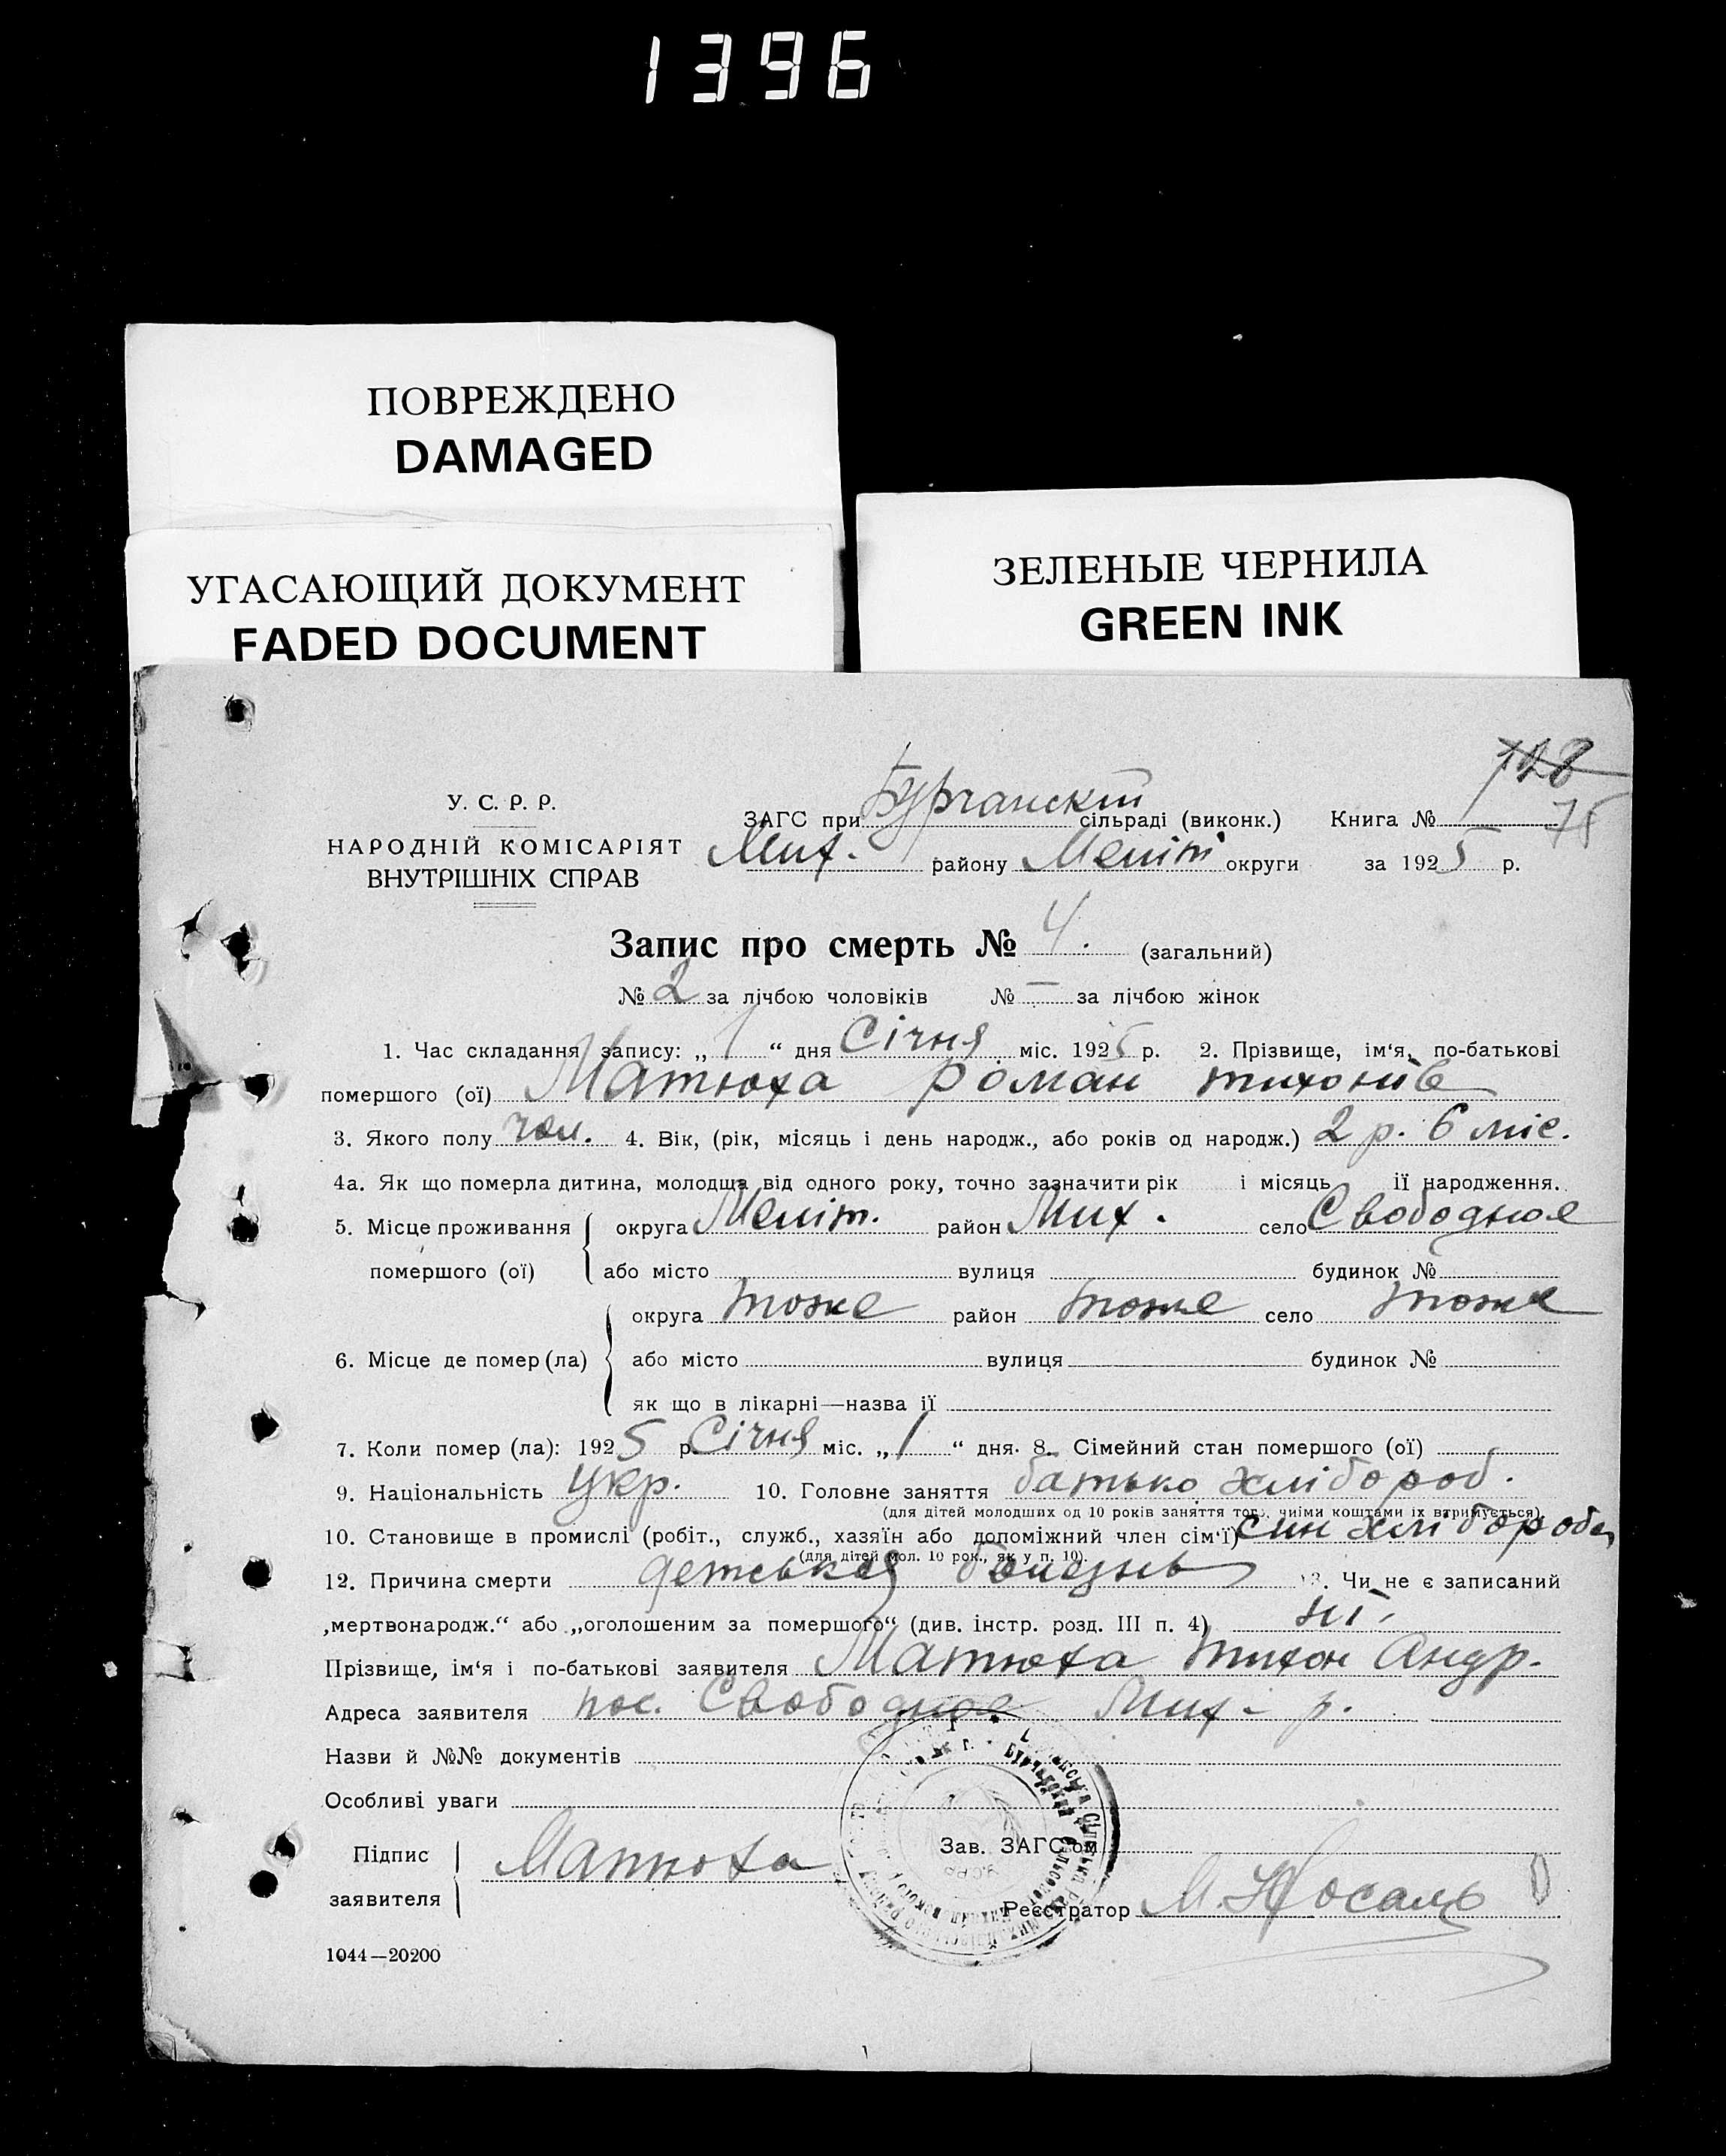 1396
ПОВРЕЖДЕНО
DAMAGED
УГАСАЮЩИЙ ДОКУМЕНТ
FADED DOCUMENT
ЗЕЛЕНЫЕ ЧЕРНИЛА
GREEN INK
728
75
У. С. Р. Р.
НАРОДНІЙ КОМІСАРІЯТ
ВНУТРІШНІХ СПРАВ
ЗАГС при Бурчанскій сільраді (виконк.) Книга №
Мих. району Меліт округи за 1925 р.
Запис про смерть № 4. (загальний)
№ 2 за лічбою чоловіків № — за лічбою жінок
1. Час складання запису: „ 1 “ дня Січня міс. 1925 р. 2. Прізвище, ім‘я, по-батькові
помершого (ої) Матюха Роман Тихонів
3. Якого полу чол. 4. Вік, (рік, місяць і день народж., або років од народж.) 2 р. 6 міс.
4а. Як що померла дитина, молодща від одного року, точно зазначити рік і місяць ії народження.
5. Місце проживання округа Меліт. район Мих. село Свободное
помершого (ої) або місто вулиця будинок №
округа тоже район тоже село тоже
6. Місце де помер (ла) або місто вулиця будинок №
як що в лікарні—назва ії
7. Коли помер (ла): 1925 р. Січня міс. „ 1 “ дня. 8. Сімейний стан помершого (ої)
9. Національність Укр. 10. Головне заняття батько хлібороб.
(для дітей молодших од 10 років заняття того, чиїми коштами їх втримується)
10. Становище в промислі (робіт., служб., хазяїн або допоміжний член сім‘ї) син хлібороба
(для дітей мол. 10 рок., як у п. 10).
12. Причина смерти детськая болезнь 13. Чи не є записаний
„мертвонародж.“ або „оголошеним за помершого“ (див. інстр. розд. III п. 4) ні.
Прізвище, ім‘я і по-батькові заявителя Матюха Тихон Андр.
Адреса заявителя пос. Свободное Мих. р.
Назви й №№ документів
Особливі уваги
Підпис
заявителя Матюха
Зав. ЗАГС‘ом
Реєстратор М. Носаль
1044—20200